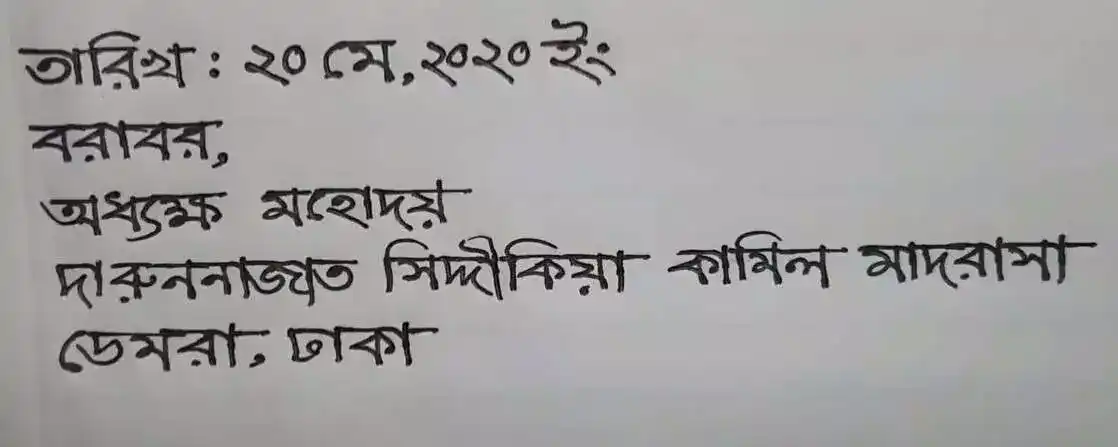 তারিখ : ২০ মে, ২০২০ ইং
বরাবর,
অধ্যক্ষ মহোদয়
দারুননাজাত সিদ্দীকিয়া কামিল মাদরাসা
ডেমরা, ঢাকা